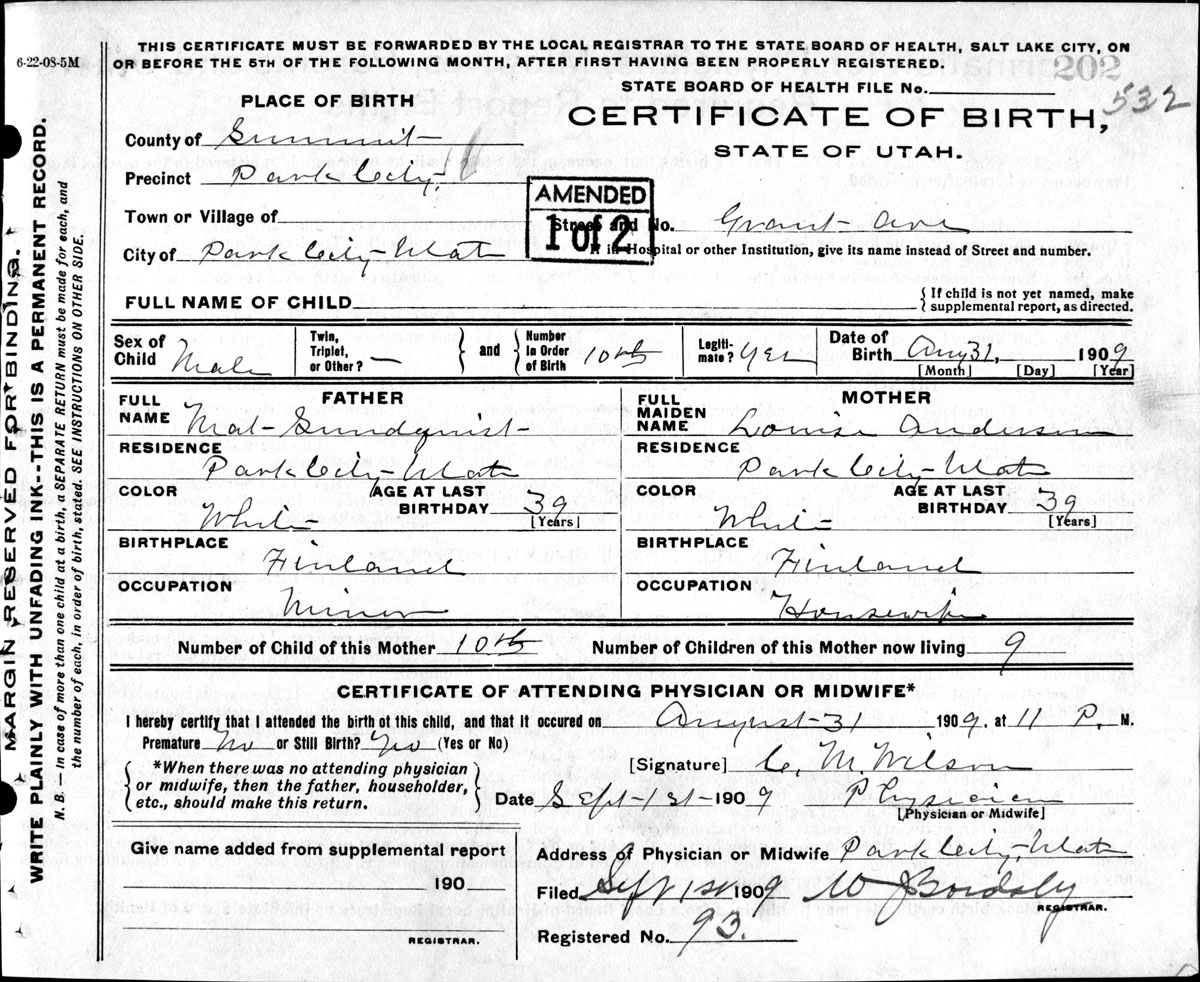 6-22-08-5M
THIS CERTIFICATE MUST BE FORWARDED BY THE LOCAL REGISTRAR TO THE STATE BOARD OF HEALTH, SALT LAKE CITY, ON
OR BEFORE THE 5TH OF THE FOLLOWING MONTH, AFTER FIRST HAVING BEEN PROPERLY REGISTERED.
202
STATE BOARD OF HEALTH FILE No.
532
PLACE OF BIRTH
CERTIFICATE OF BIRTH,
STATE OF UTAH.
County of Summit
Precinct Park City
AMENDED
1 of 2
Town or Village of
Street and No. Grant Ave
City of Park City Utah
If in Hospital or other Institution, give its name instead of Street and number.
FULL NAME OF CHILD
{If child is not yet named, make
supplemental report, as directed.
Sex of Child Male
Twin, Triplet, or Other? —
and
Number In Order of Birth 10th
Legiti-mate? Yes
Date of Birth Aug 31, 1909
[Month] [Day] [Year]
FATHER
FULL NAME Mat Sundquist
RESIDENCE Park City Utah
COLOR White
AGE AT LAST BIRTHDAY 39
[Years]
BIRTHPLACE Finland
OCCUPATION Miner
MOTHER
FULL MAIDEN NAME Louise Anderson
RESIDENCE Park City Utah
COLOR White
AGE AT LAST BIRTHDAY 39
[Years]
BIRTHPLACE Finland
OCCUPATION Housewife
Number of Child of this Mother 10th
Number of Children of this Mother now living 9
CERTIFICATE OF ATTENDING PHYSICIAN OR MIDWIFE*
I hereby certify that I attended the birth of this child, and that it occured on August 31 1909, at 11 P. M.
Premature No or Still Birth? (Yes or No)
*When there was no attending physician
or midwife, then the father, householder,
etc., should make this return.
[Signature] C. M. Wilson
Date Sept 1st 1909 Physician
[Physician or Midwife]
Give name added from supplemental report
190
REGISTRAR.
Address of Physician or Midwife Park City, Utah
Filed Sept 1st 1909 W J
REGISTRAR.
Registered No. 93.
MARGIN RESERVED FOR BINDING.
WRITE PLAINLY WITH UNFADING INK--THIS IS A PERMANENT RECORD.
N. B. — In case of more than one child at a birth, a SEPARATE RETURN must be made for each, and
the number of each, in order of birth, stated. SEE INSTRUCTIONS ON OTHER SIDE.